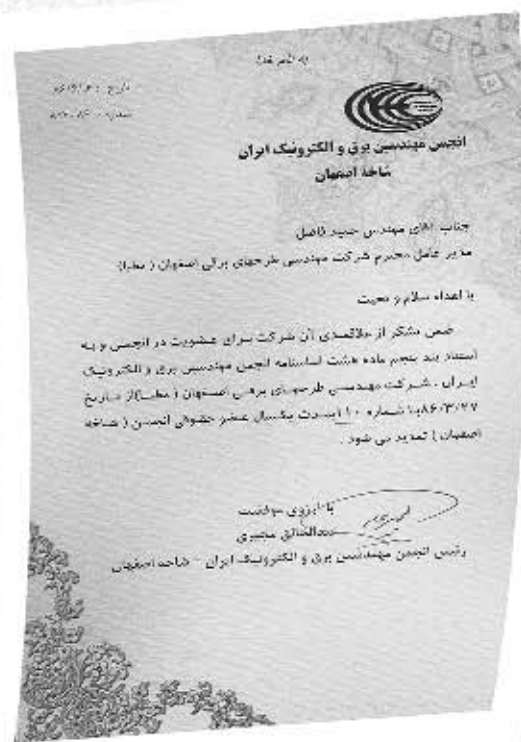 به نام خدا
تاریخ:
شماره:
انجمن مهندسین برق و الکترونیک ایران
شاخه اصفهان
جناب آقای مهندس حمید فاضل
مدیر عامل محترم شرکت مهندسی طرحهای برقی اصفهان ( مطبا)
با اهداء سلام و تحیت
ضمن تشکر از علاقمندی آن شرکت برای عضویت در انجمن و به
استناد بند پنجم ماده هشت اساسنامه انجمن مهندسین برق و الکترونیک
ایران ، شرکت مهندسی طرحهای برقی اصفهان ( مطبا)از تاریخ
۸۶/۳/۲۷ با شماره ۱۱۰ بمدت یکسال عضو حقوقی انجمن ( شاخه
اصفهان ) تمدید می شود .
با آرزوی موفقیت
رئیس انجمن مهندسین برق و الکترونیک ایران - شاخه اصفهان